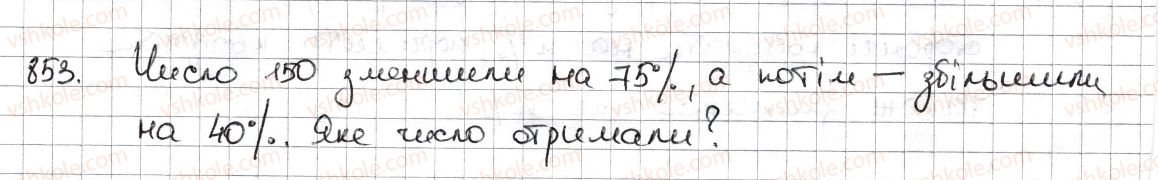 853. Число 150 зменшили на 75%, а потім — збільшили
на 40%. Яке число отримали?